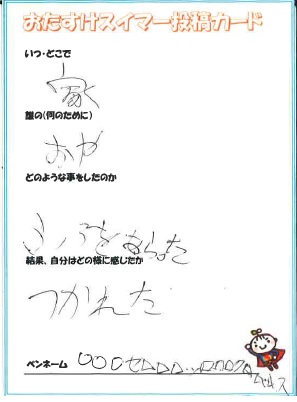 おたすけスイマー投稿カード
いつ・どこで
家
誰の(何のために)
おや
どのような事をしたのか
ふろをあらった
結果、自分はどの様に感じたか
つかれた
ペンネーム